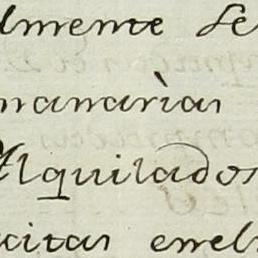 lmente se
manarias
Alquilados
citas enel